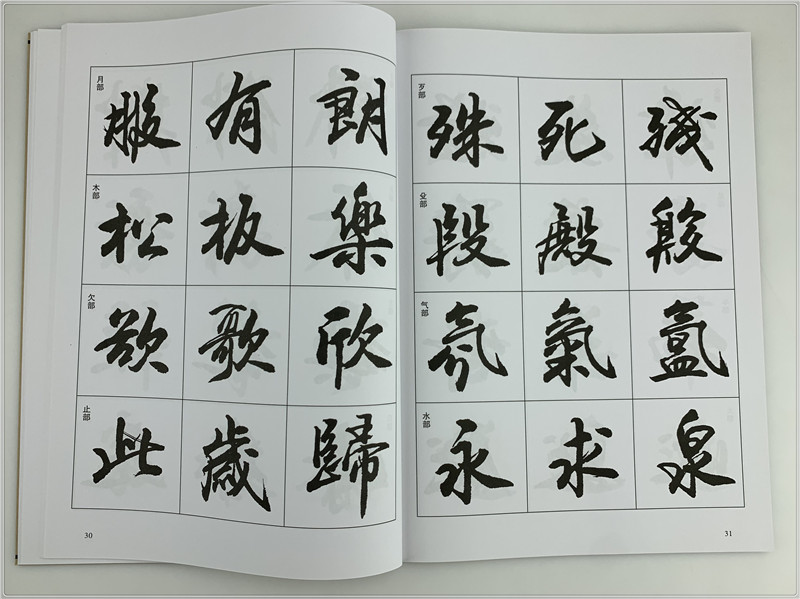 月部
服 有 朗
木部
松 板 樂
欠部
欲 歌 欣
止部
此 歲 歸
30
歹部
殊 死 殘
殳部
段 殿 毅
气部
氛 氣 氳
水部
永 求 泉
31